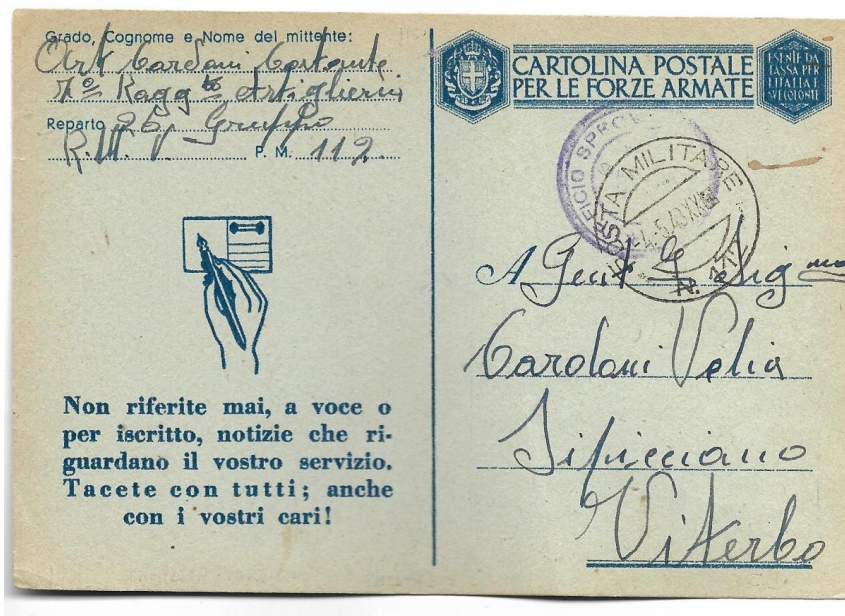 Grado, Cognome e Nome del mittente:
Art Cardoni Costante
7º Ragg to Artiglieria
Reparto 26 Gruppo
P. M. 112
Non riferite mai, a voce o
per iscritto, notizie che ri-
guardano il vostro servizio.
Tacete con tutti; anche
con i vostri cari!
CARTOLINA POSTALE
PER LE FORZE ARMATE
ESENTE DA
TASSA PER
L'ITALIA E
POSTA MILITARE
N. 112
A Gent Sig
Cardoni Velia
Sipicciano
Viterbo